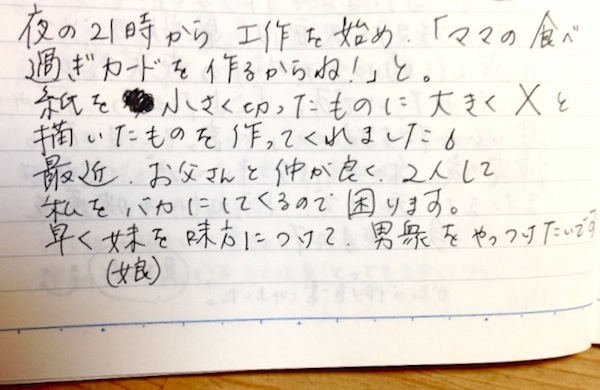 夜の21時から 工作を始め、「ママの食べ
過ぎカードを作るからね!」と。
紙を 小さく切ったものに大きく X と
描いたものを作ってくれました。
最近、お父さんと仲が良く、2人して
私をバカにしてくるので困ります。
早く妹を味方につけて、男衆をやっつけたいです
(娘)